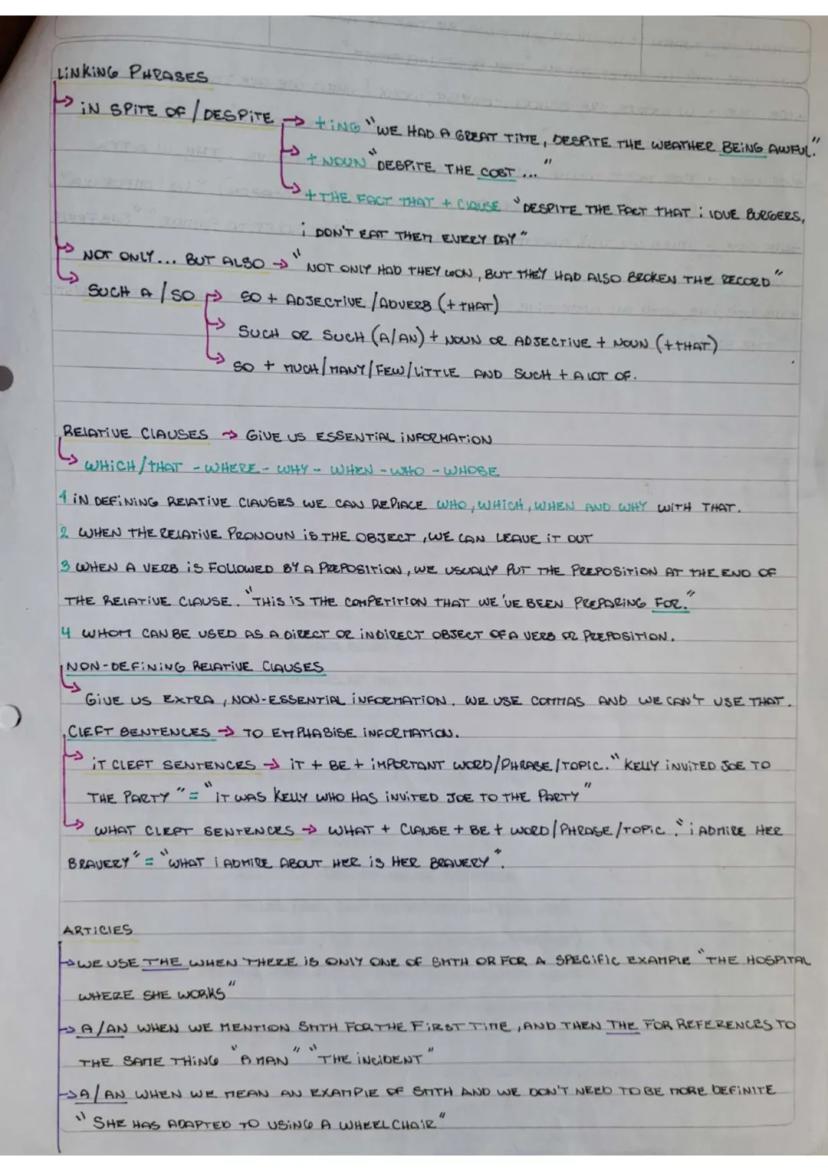 LINKING PHRASES
→ IN SPITE OF / DESPITE → + ING "WE HAD A GREAT TIME, DESPITE THE WEATHER BEING AWFUL."
→ + NOUN "DESPITE THE COST ..."
→ + THE FACT THAT + CLAUSE "DESPITE THE FACT THAT I LOVE BURGERS,
I DON'T EAT THEM EVERY DAY"
→ NOT ONLY... BUT ALSO → "NOT ONLY HAD THEY WON, BUT THEY HAD ALSO BROKEN THE RECORD"
→ SUCH A / SO → SO + ADJECTIVE / ADVERB (+ THAT)
→ SUCH OR SUCH (A/AN) + NOUN OR ADJECTIVE + NOUN (+ THAT)
→ SO + MUCH/MANY/FEW/LITTLE AND SUCH + A LOT OF.
RELATIVE CLAUSES → GIVE US ESSENTIAL INFORMATION
→ WHICH/THAT - WHERE - WHY - WHEN - WHO - WHOSE
1 IN DEFINING RELATIVE CLAUSES WE CAN REPLACE WHO, WHICH, WHEN AND WHY WITH THAT.
2 WHEN THE RELATIVE PRONOUN IS THE OBJECT, WE CAN LEAVE IT OUT
3 WHEN A VERB IS FOLLOWED BY A PREPOSITION, WE USUALLY PUT THE PREPOSITION AT THE END OF
THE RELATIVE CLAUSE. "THIS IS THE COMPETITION THAT WE'VE BEEN PREPARING FOR."
4 WHOM CAN BE USED AS A DIRECT OR INDIRECT OBJECT OF A VERB OR PREPOSITION.
NON-DEFINING RELATIVE CLAUSES
→ GIVE US EXTRA, NON-ESSENTIAL INFORMATION. WE USE COMMAS AND WE CAN'T USE THAT.
CLEFT SENTENCES → TO EMPHASISE INFORMATION.
→ IT CLEFT SENTENCES → IT + BE + IMPORTANT WORD/PHRASE/TOPIC. "KELLY INVITED JOE TO
THE PARTY" = "IT WAS KELLY WHO HAS INVITED JOE TO THE PARTY"
→ WHAT CLEFT SENTENCES → WHAT + CLAUSE + BE + WORD/PHRASE/TOPIC. "I ADMIRE HER
BRAVERY" = "WHAT I ADMIRE ABOUT HER IS HER BRAVERY".
ARTICLES
→ WE USE THE WHEN THERE IS ONLY ONE OF SMTH OR FOR A SPECIFIC EXAMPLE "THE HOSPITAL
WHERE SHE WORKS"
→ A/AN WHEN WE MENTION SMTH FOR THE FIRST TIME, AND THEN THE FOR REFERENCES TO
THE SAME THING "A MAN" "THE INCIDENT"
→ A/AN WHEN WE MEAN AN EXAMPLE OF SMTH AND WE DON'T NEED TO BE MORE DEFINITE
"SHE HAS ADAPTED TO USING A WHEELCHAIR"